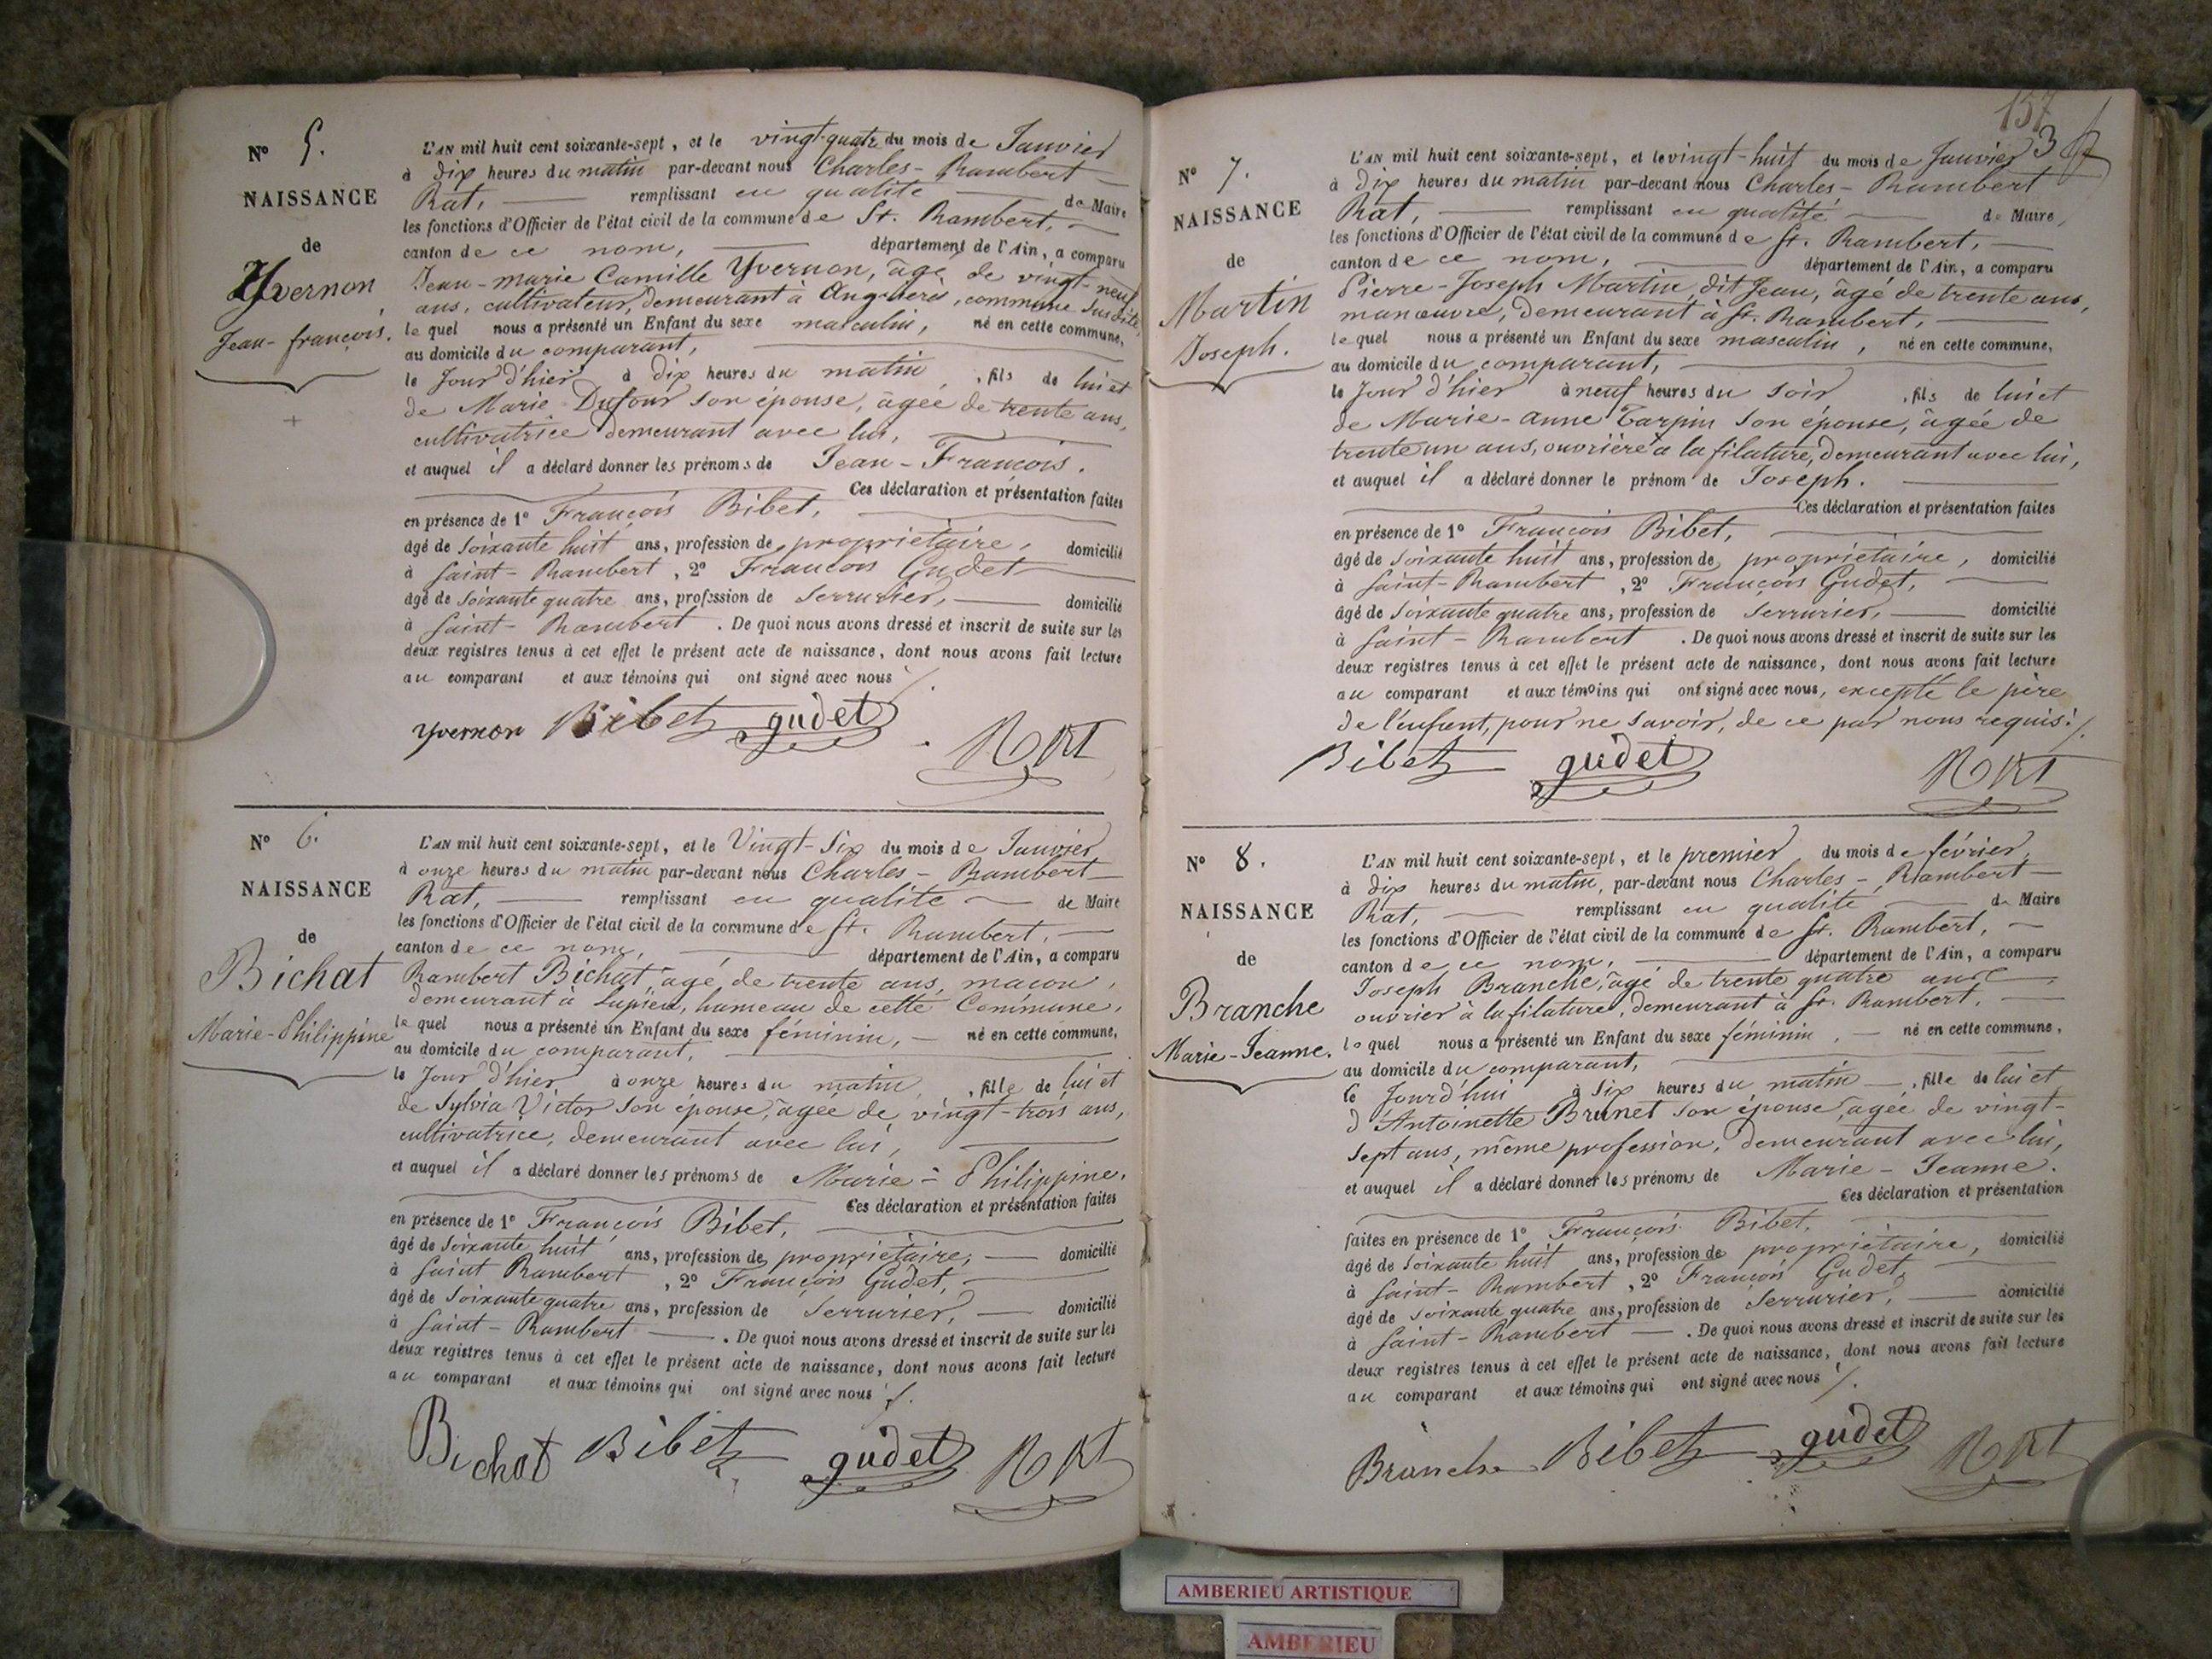 N° 5.
NAISSANCE
de
Yvernon
Jean-françois.
L'AN mil huit cent soixante-sept, et le vingt-quatre du mois de Janvier
à dix heures du matin par-devant nous Charles-Rambert
Rat, remplissant en qualité de Maire
les fonctions d'Officier de l'état civil de la commune de St. Rambert,
canton de ce nom, département de l'Ain, a comparu
Jean-marie Camille Yvernon, âgé de vingt-neuf
ans, cultivateur, demeurant à commune susdite,
le quel nous a présenté un Enfant du sexe masculin, né en cette commune,
au domicile du comparant,
le Jour d'hier à dix heures du matin, fils de lui et
de Marie Dufour son épouse, âgée de trente ans,
cultivatrice demeurant avec lui,
et auquel il a déclaré donner les prénoms de Jean-François.
Ces déclaration et présentation faites
en présence de 1° François Bibet,
âgé de soixante huit ans, profession de propriétaire, domicilié
à Saint-Rambert, 2° François Gudet
âgé de soixante quatre ans, profession de serrurier, domicilié
à Saint-Rambert. De quoi nous avons dressé et inscrit de suite sur les
deux registres tenus à cet effet le présent acte de naissance, dont nous avons fait lecture
au comparant et aux témoins qui ont signé avec nous
Yvernon Bibet gudet Rat
N° 6.
NAISSANCE
de
Bichat
Marie-Philippine
L'AN mil huit cent soixante-sept, et le Vingt-six du mois de Janvier
à onze heures du matin par-devant nous Charles-Rambert
Rat, remplissant en qualité de Maire
les fonctions d'Officier de l'état civil de la commune de St. Rambert,
canton de ce nom, département de l'Ain, a comparu
Rambert Bichat, âgé de trente ans, maçon,
demeurant à hameau de cette Commune,
le quel nous a présenté un Enfant du sexe féminin, né en cette commune,
au domicile du comparant,
le Jour d'hier à onze heures du matin, fille de lui et
de Sylvia Victor son épouse, âgée de vingt-trois ans,
cultivatrice, demeurant avec lui,
et auquel il a déclaré donner les prénoms de Marie-Philippine.
Ces déclaration et présentation faites
en présence de 1° François Bibet,
âgé de soixante huit ans, profession de propriétaire, domicilié
à Saint Rambert, 2° François Gudet,
âgé de soixante quatre ans, profession de serrurier, domicilié
à Saint-Rambert. De quoi nous avons dressé et inscrit de suite sur les
deux registres tenus à cet effet le présent acte de naissance, dont nous avons fait lecture
au comparant et aux témoins qui ont signé avec nous
Bichat Bibet gudet Rat
157
3
N° 7.
NAISSANCE
de
Martin
Joseph.
L'AN mil huit cent soixante-sept, et le vingt-huit du mois de Janvier
à dix heures du matin par-devant nous Charles-Rambert
Rat, remplissant en qualité de Maire,
les fonctions d'Officier de l'état civil de la commune de St. Rambert,
canton de ce nom, département de l'Ain, a comparu
Pierre-Joseph Martin, dit Jean, âgé de trente ans,
manœuvre, demeurant à St. Rambert,
le quel nous a présenté un Enfant du sexe masculin, né en cette commune,
au domicile du comparant,
le Jour d'hier à neuf heures du soir, fils de lui et
de Marie-anne Tarpin son épouse, âgée de
trente un ans, ouvrière à la filature, demeurant avec lui,
et auquel il a déclaré donner le prénom de Joseph.
Ces déclaration et présentation faites
en présence de 1° François Bibet,
âgé de soixante huit ans, profession de propriétaire, domicilié
à Saint-Rambert, 2° François Gudet,
âgé de soixante quatre ans, profession de serrurier, domicilié
à Saint-Rambert. De quoi nous avons dressé et inscrit de suite sur les
deux registres tenus à cet effet le présent acte de naissance, dont nous avons fait lecture
au comparant et aux témoins qui ont signé avec nous, excepté le père
de l'enfant, pour ne savoir, de ce par nous requis.
Bibet gudet Rat
N° 8.
NAISSANCE
de
Branche
Marie-Jeanne.
L'AN mil huit cent soixante-sept, et le premier du mois de février,
à dix heures du matin, par-devant nous Charles-Rambert
Rat, remplissant en qualité de Maire
les fonctions d'Officier de l'état civil de la commune de St. Rambert,
canton de ce nom, département de l'Ain, a comparu
Joseph Branche, âgé de trente quatre ans,
ouvrier à la filature, demeurant à St. Rambert,
le quel nous a présenté un Enfant du sexe féminin, né en cette commune,
au domicile du comparant,
le Jourd'hui à six heures du matin, fille de lui et
d'Antoinette Brunet son épouse, âgée de vingt-
sept ans, même profession, demeurant avec lui,
et auquel il a déclaré donner les prénoms de Marie-Jeanne.
Ces déclaration et présentation
faites en présence de 1° François Bibet,
âgé de soixante huit ans, profession de propriétaire, domicilié
à Saint-Rambert, 2° François Gudet,
âgé de soixante quatre ans, profession de serrurier, domicilié
à Saint-Rambert. De quoi nous avons dressé et inscrit de suite sur les
deux registres tenus à cet effet le présent acte de naissance, dont nous avons fait lecture
au comparant et aux témoins qui ont signé avec nous
Branche Bibet gudet Rat
AMBERIEU ARTISTIQUE
AMBERIEU